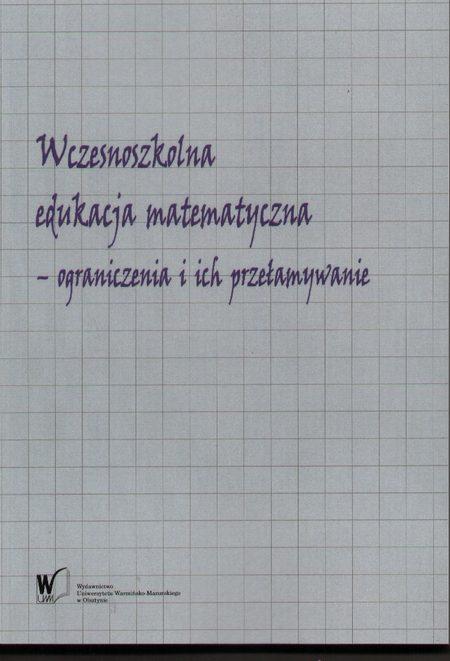 Wczesnoszkolna
edukacja matematyczna
– ograniczenia i ich przełamywanie
W
UWM
Wydawnictwo
Uniwersytetu Warmińsko-Mazurskiego
w Olsztynie